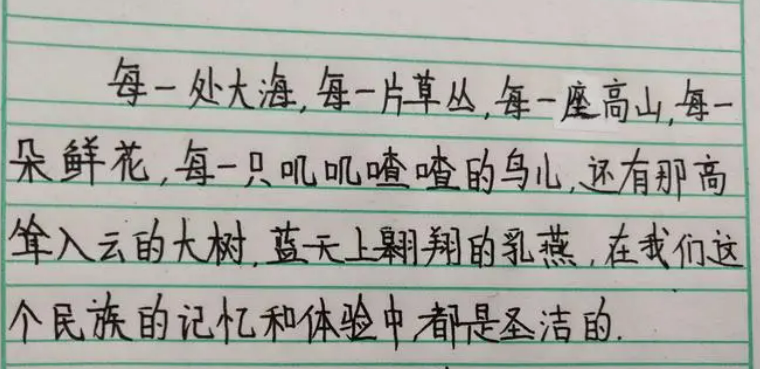 每一处大海,每一片草丛,每一座高山,每一
朵鲜花,每一只叽叽喳喳的鸟儿,还有那高
耸入云的大树,蓝天上翱翔的乳燕,在我们这
个民族的记忆和体验中,都是圣洁的.